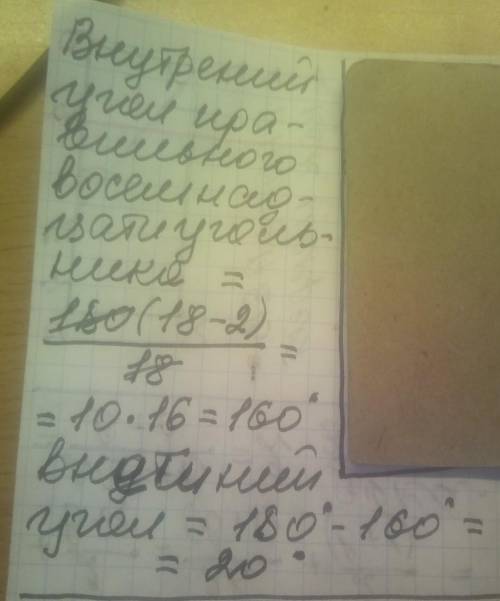 Внутрений
угол пра-
вильного
восемнад-
цатиуголь-
ника =
180(18-2)
18 =
= 10·16 = 160°
внешний
угол = 180° - 160° =
= 20°